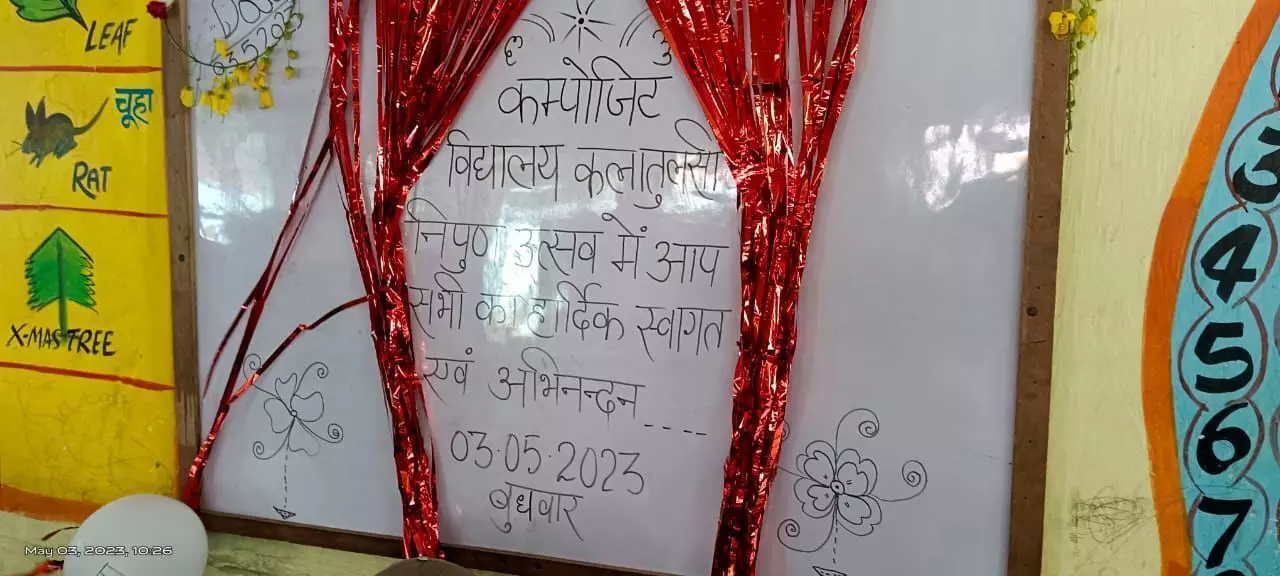 LEAF
चूहा
RAT
X-MAS TREE
कम्पोजिट
विद्यालय कलातुलसी
निपुण उत्सव में आप
सभी का हार्दिक स्वागत
एवं अभिनन्दन----
03.05.2023
बुधवार
3
4
5
6
7
May 03, 2023, 10:26